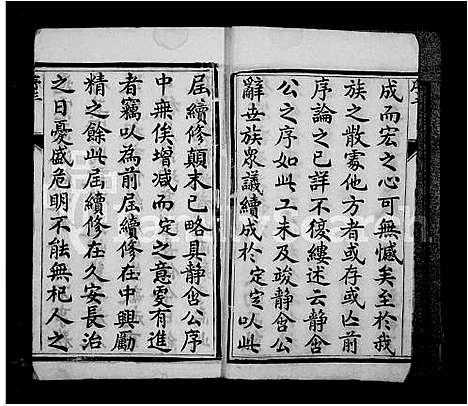 成而宏之心可無憾矣至於我
族之散寡他方者或存或亾前
序論之已詳不復縷述云静舍
公之序如此工未及竣静舍公
辭世族衆議續成於定定以此
屆續修顛末已略具静舍公序
中無俟增减而定之意更有進
者竊以為前屆續修在中興勵
精之餘此屆續修在久安長治
之日憂盛危明不能無杞人之